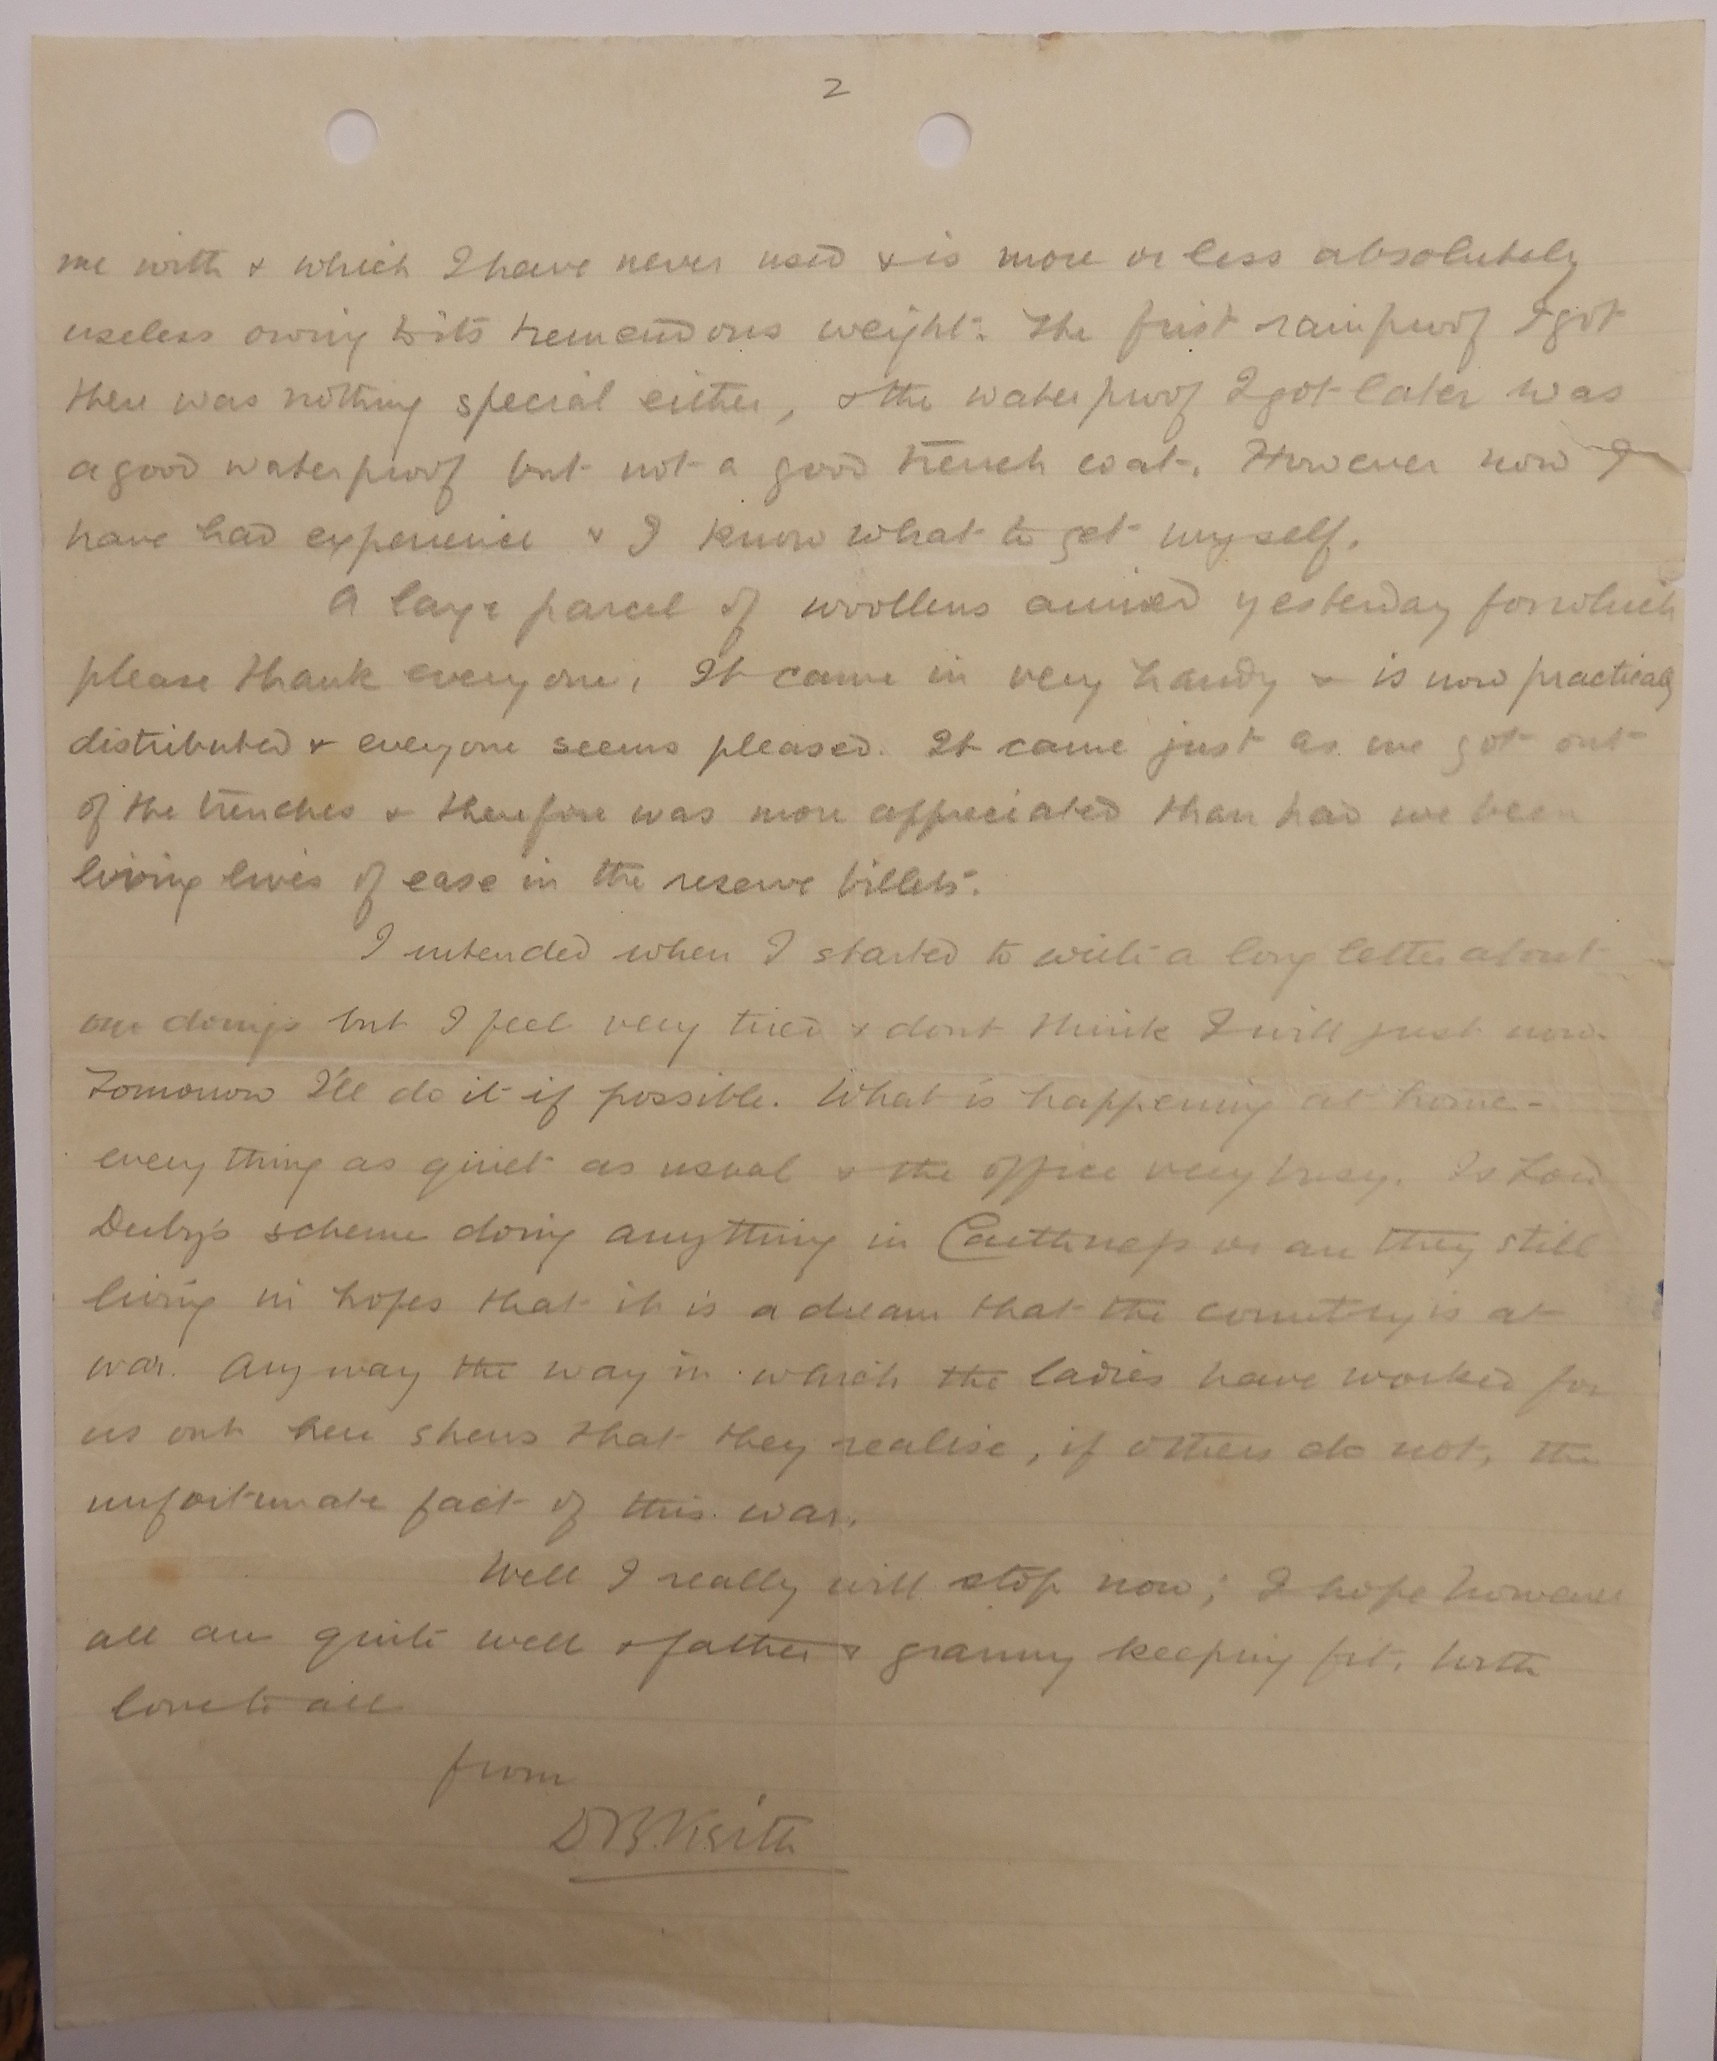 2
me with & which I have never used & is more or less absolutely
useless owing to its tremendous weight. The first rainproof I got
there was nothing special either, & the waterproof I got later was
a good waterproof but not a good trench coat. However now I
have had experience & I know what to get myself.
A large parcel of woollens arrived yesterday for which
please thank everyone. It came in very handy & is now practically
distributed & everyone seems pleased. It came just as we got out
of the trenches & therefore was more appreciated than had we been
living lives of ease in the reserve billets.
I intended when I started to write a long letter about
our doings but I feel very tired & dont think I will just now.
Tomorrow I'll do it if possible. What is happening at home -
every thing as quiet as usual & the office very busy. Is Lord
Derby's scheme doing anything in Caithness or are they still
living in hopes that it is a dream that the country is at
war. Any way the way in which the ladies have worked for
us out here shews that they realise, if others do not, the
unfortunate fact of this war.
Well I really will stop now; I hope however
all are quite well & father & granny keeping fit. With
love to all
from
D B Keith